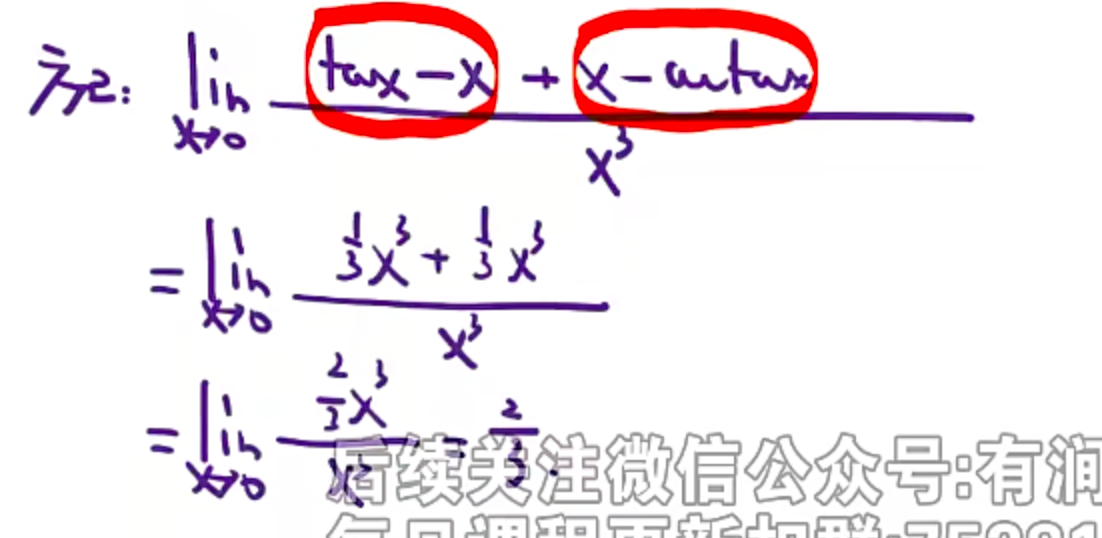 方法2: lim x→0 (tanx - x + x - arctanx) / x³
= lim x→0 (1/3 x³ + 1/3 x³) / x³
= lim x→0 (2/3 x³) / x³ = 2/3.
后续关注微信公众号:有润